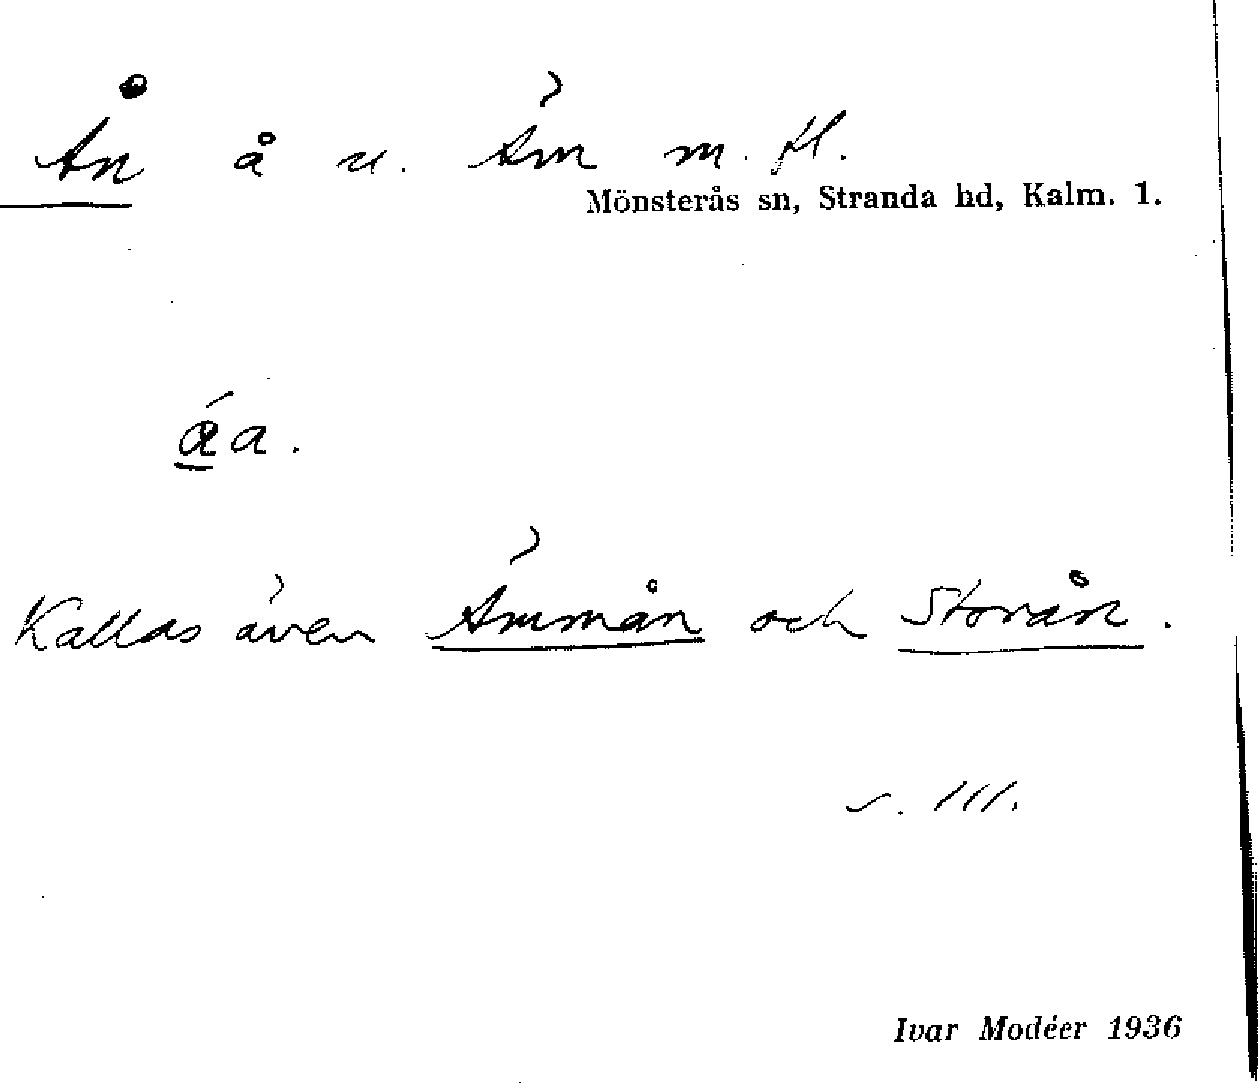 Ån å u. Äm m. fl.
Mönsterås sn, Stranda hd, Kalm. 1.
áa.
Kallas även Ämmån och Storån.
s. 111.
Ivar Modéer 1936